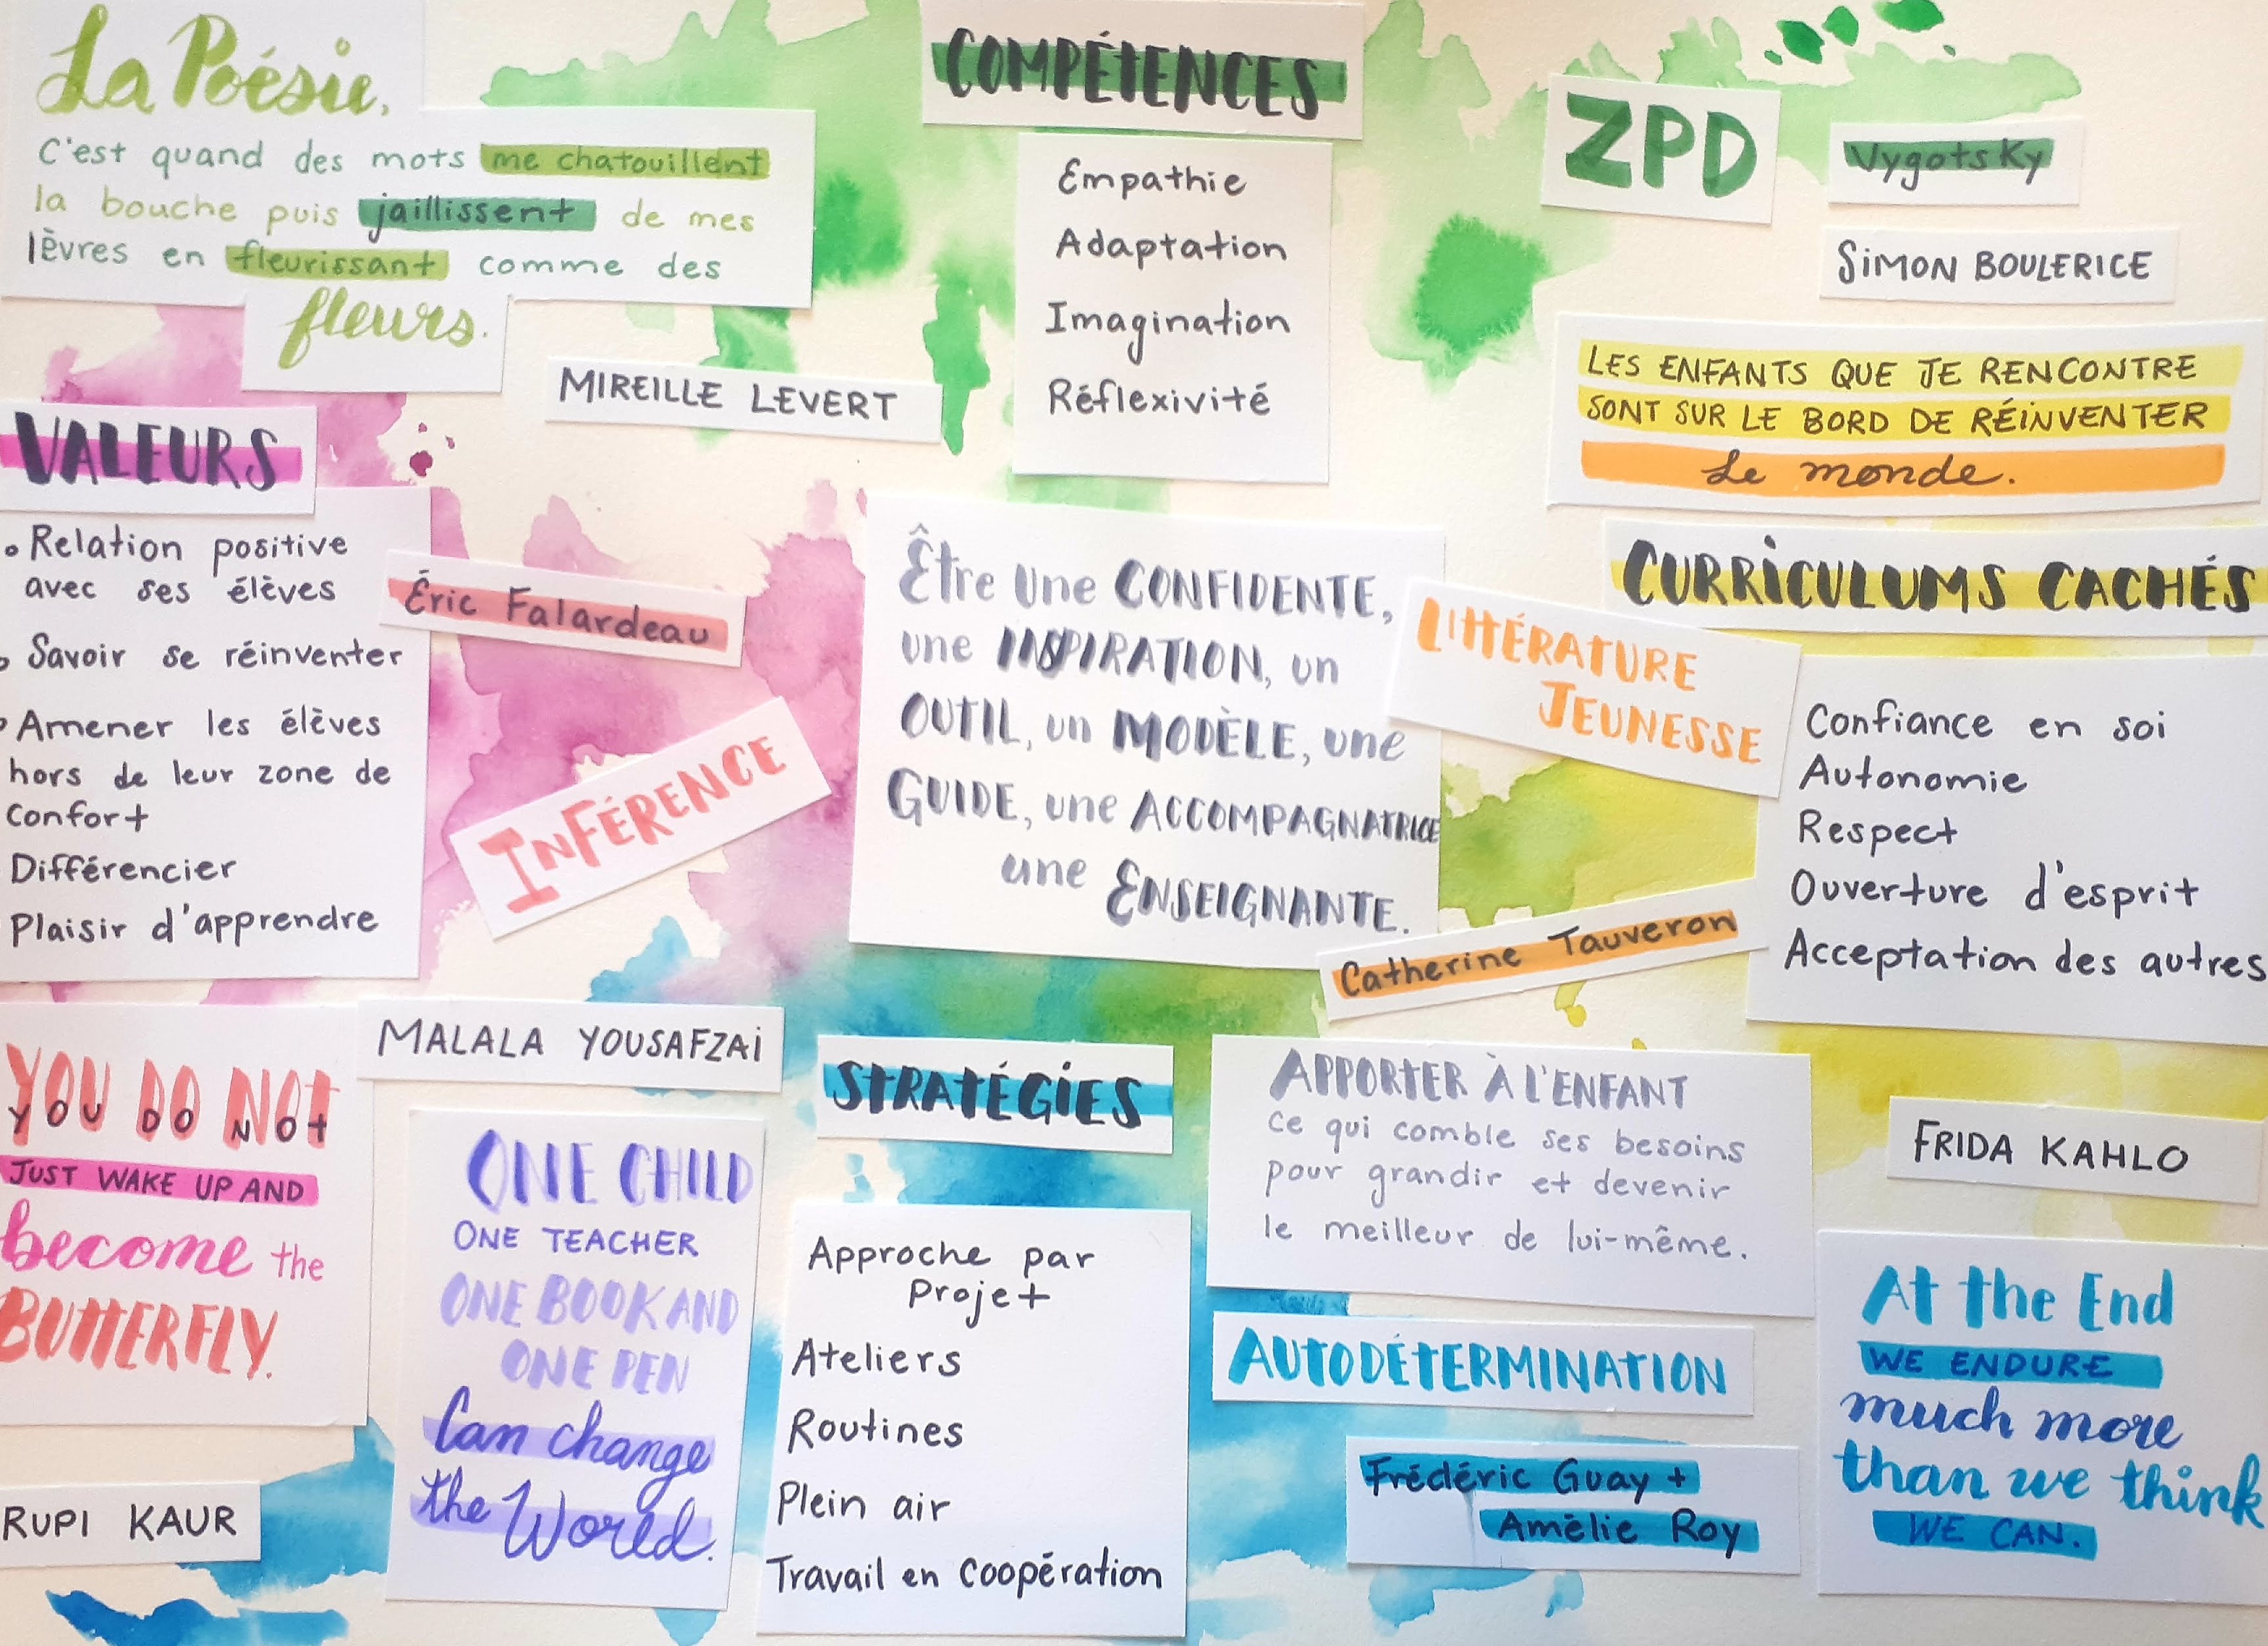 La Poésie,
C'est quand des mots me chatouillent
la bouche puis jaillissent de mes
lèvres en fleurissant comme des
fleurs.
MIREILLE LEVERT
COMPÉTENCES
Empathie
Adaptation
Imagination
Réflexivité
ZPD
Vygotsky
SIMON BOULERICE
LES ENFANTS QUE JE RENCONTRE
SONT SUR LE BORD DE RÉINVENTER
Le monde.
VALEURS
Relation positive
avec ses élèves
Savoir se réinventer
Amener les élèves
hors de leur zone de
confort
Différencier
Plaisir d'apprendre
Éric Falardeau
INFÉRENCE
Être une CONFIDENTE,
une INSPIRATION, un
OUTIL, un MODÈLE, une
GUIDE, une ACCOMPAGNATRICE
une ENSEIGNANTE.
LITTÉRATURE
JEUNESSE
Catherine Tauveron
CURRICULUMS CACHÉS
Confiance en soi
Autonomie
Respect
Ouverture d'esprit
Acceptation des autres
YOU DO NOT
YOU DO NOT
JUST WAKE UP AND
become the
BUTTERFLY.
RUPI KAUR
MALALA YOUSAFZAI
ONE CHILD
ONE TEACHER
ONE BOOK AND
ONE PEN
Can change
the World.
STRATÉGIES
Approche par
Projet
Ateliers
Routines
Plein air
Travail en coopération
APPORTER À L'ENFANT
ce qui comble ses besoins
pour grandir et devenir
le meilleur de lui-même.
AUTODÉTERMINATION
Frédéric Guay +
Amélie Roy
FRIDA KAHLO
At the End
WE ENDURE
much more
than we think
WE CAN.